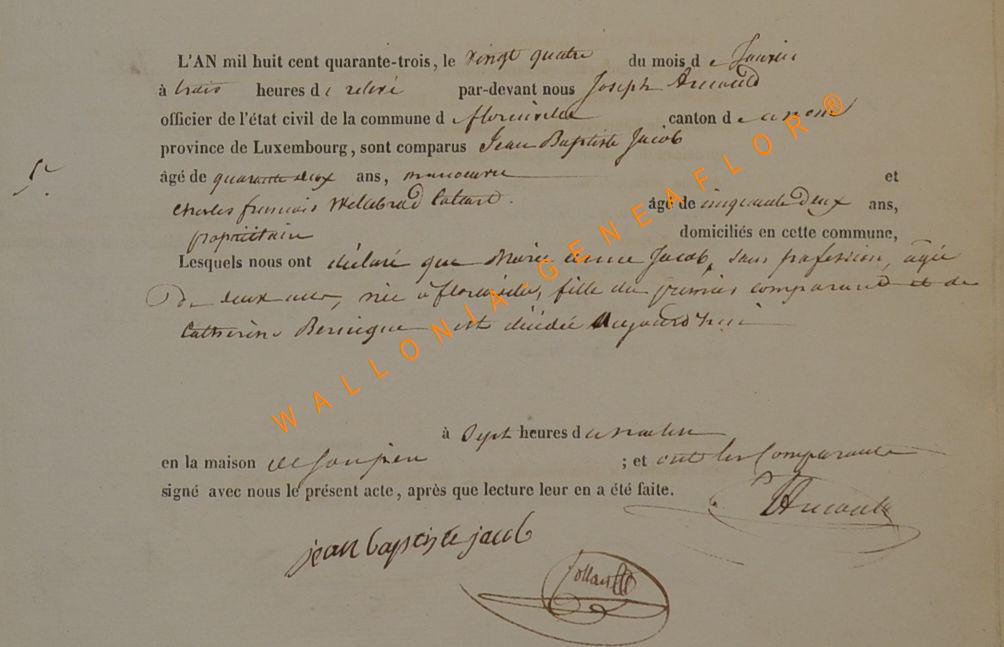 L'AN mil huit cent quarante-trois, le vingt quatre du mois de Janvier
à trois heures de relevé par-devant nous Joseph Arnould
officier de l'état civil de la commune de florenville canton de
province de Luxembourg, sont comparus Jean Baptiste Jacob
5.
âgé de quarante deux ans, manoeuvre et
Charles françois âgé de cinquante deux ans,
propriétaire domiciliés en cette commune,
Lesquels nous ont déclaré que Marie anne Jacob, sans profession, agée
De deux ans, née à florenville, fille du premier comparant et de
Catherine est décédée aujourd'hui
à Sept heures du matin
en la maison de son père ; et ont les Comparants
signé avec nous le présent acte, après que lecture leur en a été faite.
JArnould
jean baptiste jacob
WALLONIA-GENEAFLOR®